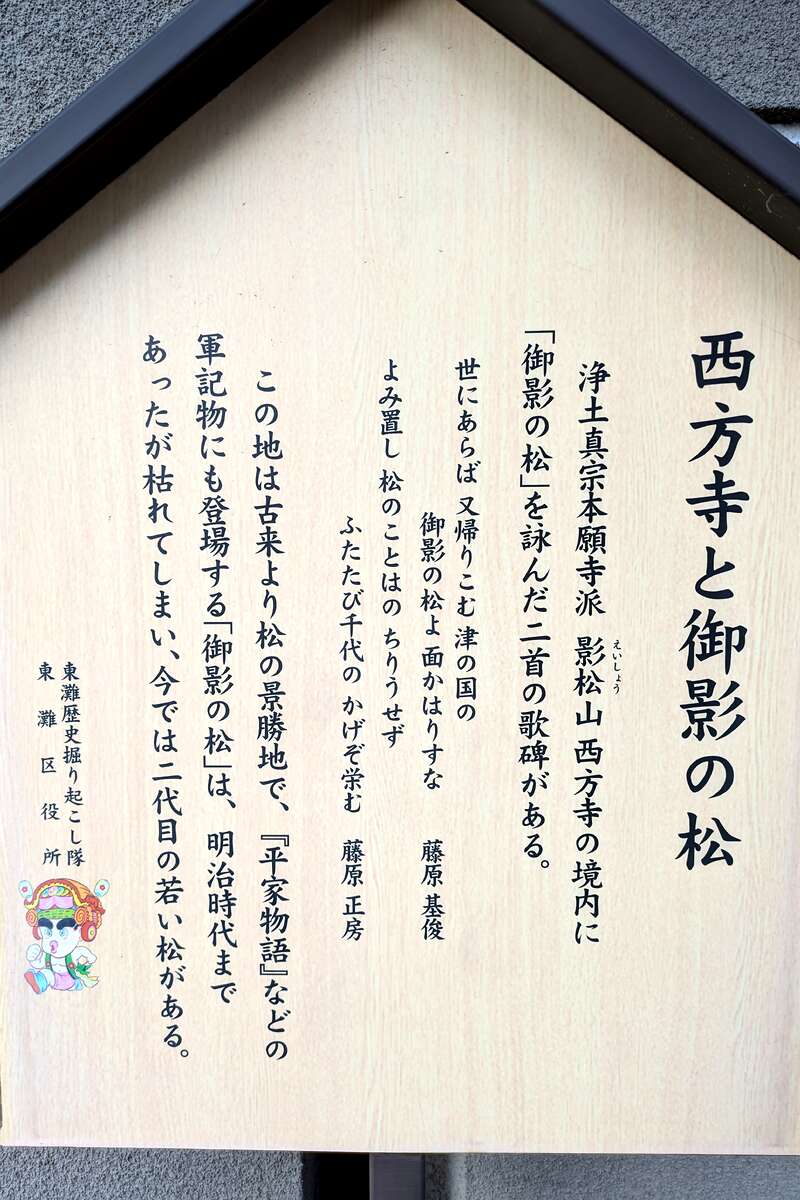 西方寺と御影の松
浄土真宗本願寺派 影松山 西方寺の境内に
えいしょう
「御影の松」を詠んだ二首の歌碑がある。
世にあらば 又帰りこむ 津の国の
御影の松よ 面かはりすな 藤原 基俊
よみ置し 松のことはの ちりうせず
ふたたび千代の かげぞ栄む 藤原 正房
この地は古来より松の景勝地で、『平家物語』などの
軍記物にも登場する「御影の松」は、明治時代まで
あったが枯れてしまい、今では二代目の若い松がある。
東灘歴史掘り起こし隊
東灘区役所